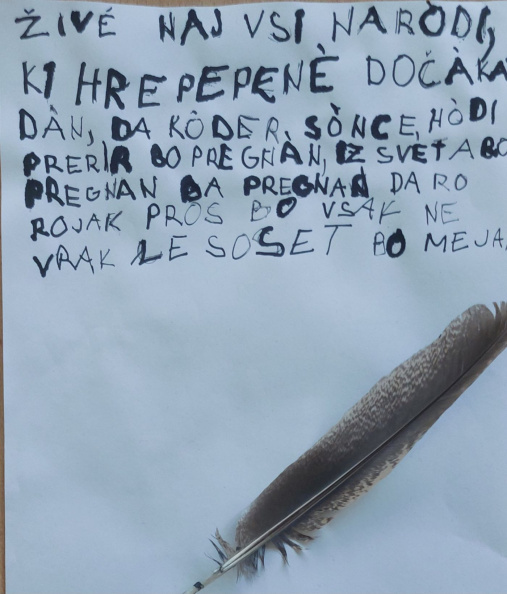 ŽIVÉ NAJ VSI NARÒDI,
KI HREPEPENÈ DOČÀKA
DÀN, DA KÔDER, SÒNCE, HÒDI
PRERIR BO PREGNÀN, IZ SVETA BO
PREGNAN DA PREGNAN DA RO
ROJAK PROS BO VSAK NE
VRAK LE SOSET BO MEJA